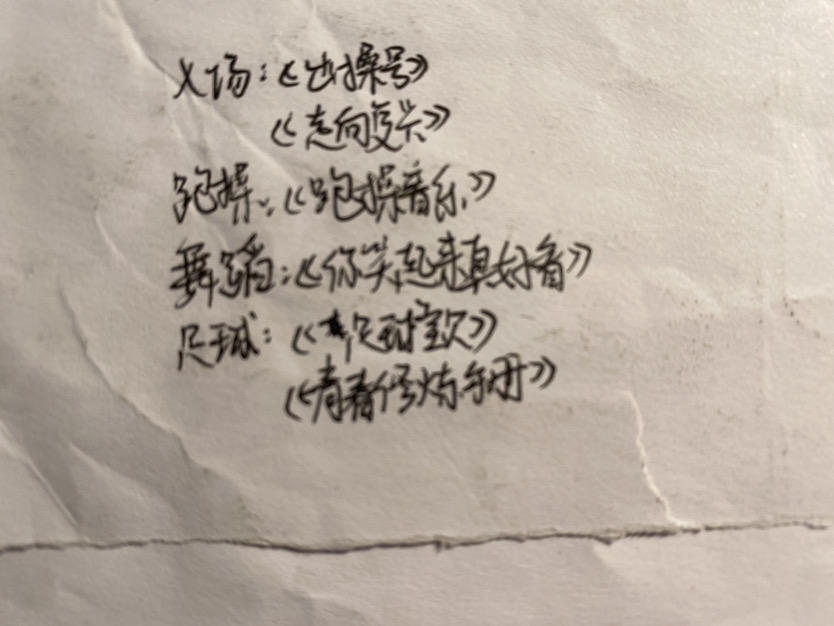 入场:《出操号》
《志向
跑操:《跑操音乐》
舞蹈:《你笑起来真好看》
足球:《足球宝贝》
《青春修炼手册》